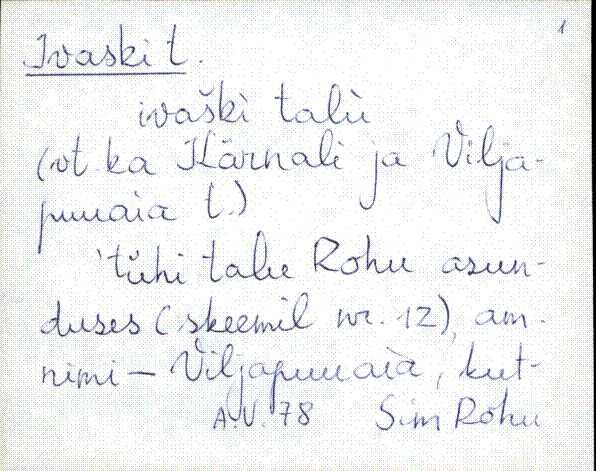 1
Ivaski t.
ivaški talù
(vt. ka Kärnali ja Vilja-
puuaia t.)
'tühi talu Rohu asun-
duses (skeemil nr. 12), am.
nimi – Viljapuuaia, kut-
A.V. 78 Sim Rohu